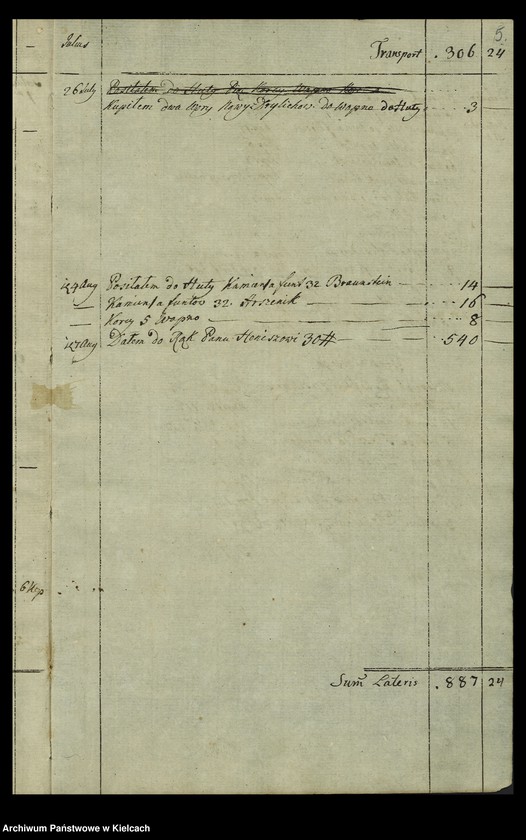 5.
Julius
Transport . 306 24
26 July Posłałem do Huty Korcy Wapna
Kupiłem dwa Wory Nowych Drylichow. Do Wapna do Huty 3
d 4 Aug Posłałem do Huty Kamienia funt 32 Braunstein 14
— Kamienia funtow 32. Arszenik 16
— Korcy 5 Wapno 8
d 7 Aug Dałem do Rąk Panu Heniszowi 30 # 540
6 kop
Sum̄ Lateris . 887 24
Archiwum Państwowe w Kielcach